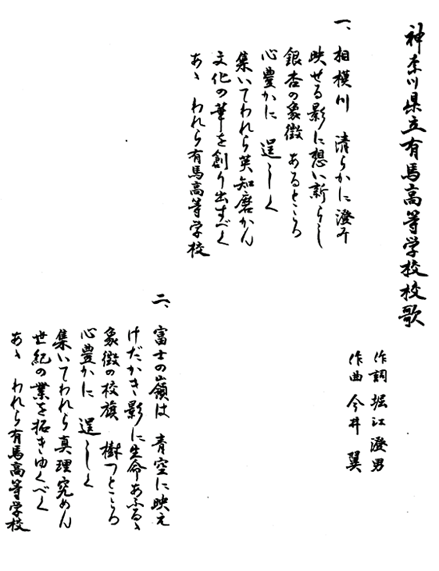 神奈川県立有馬高等学校校歌
作詞 堀江澄男
作曲 今井翼
一、相模川 清らかに澄み
映せる影に想い新らし
銀杏の象徴 あるところ
心豊かに 逞しく
集いてわれら英知磨かん
文化の華を創り出すべく
あゝ われら有馬高等学校
二、富士の嶺は 青空に映え
けだかき影に生命あふるゝ
象徴の校旗 樹つところ
心豊かに 逞しく
集いてわれら真理究めん
世紀の業を拓きゆくべく
あゝ われら有馬高等学校